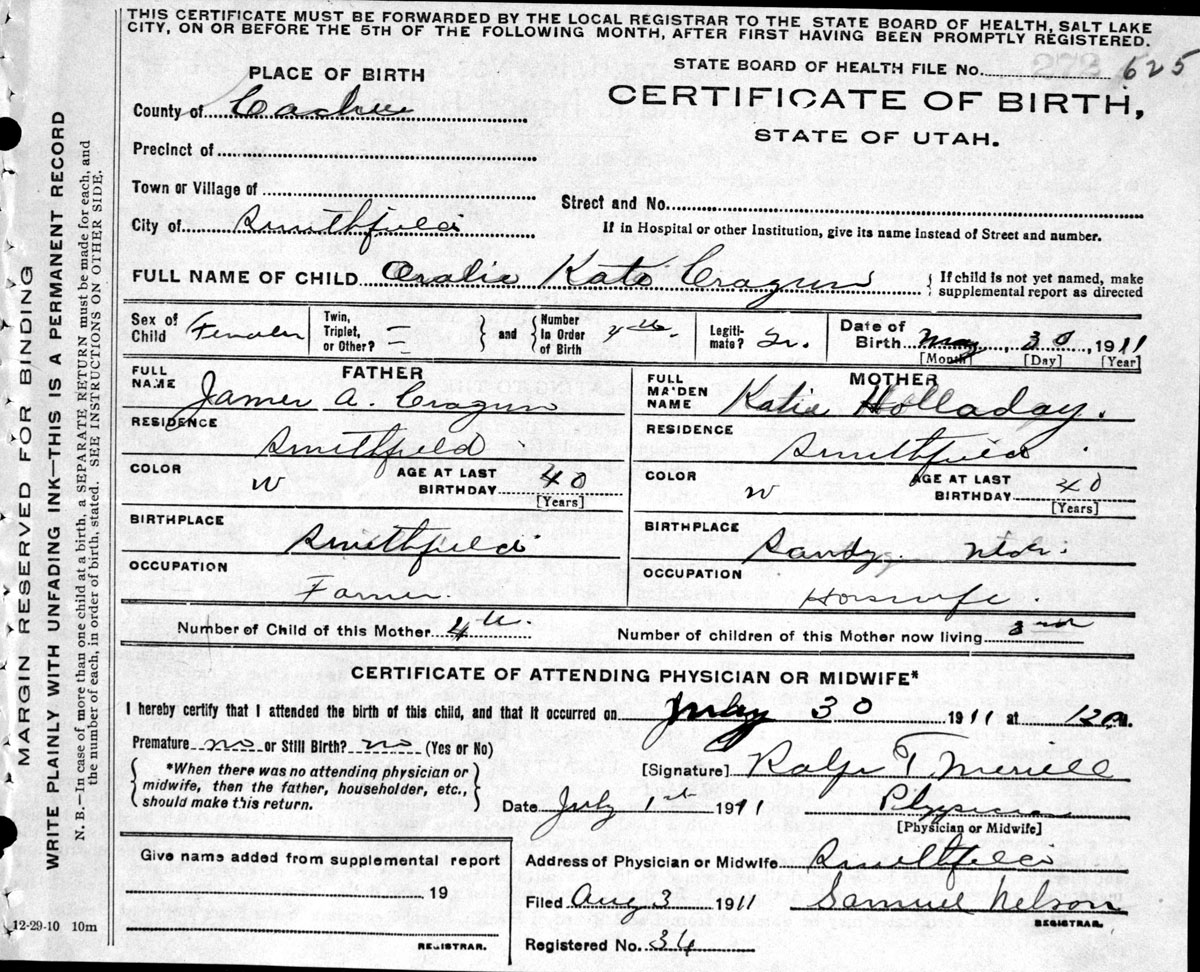 THIS CERTIFICATE MUST BE FORWARDED BY THE LOCAL REGISTRAR TO THE STATE BOARD OF HEALTH, SALT LAKE
CITY, ON OR BEFORE THE 5TH OF THE FOLLOWING MONTH, AFTER FIRST HAVING BEEN PROMPTLY REGISTERED.
MARGIN RESERVED FOR BINDING
WRITE PLAINLY WITH UNFADING INK—THIS IS A PERMANENT RECORD
N. B.—In case of more than one child at a birth, a SEPARATE RETURN must be made for each, and
the number of each, in order of birth, stated. SEE INSTRUCTIONS ON OTHER SIDE.
PLACE OF BIRTH
STATE BOARD OF HEALTH FILE No. 273 625
County of Cache
CERTIFICATE OF BIRTH,
STATE OF UTAH.
Precinct of
Town or Village of
Street and No.
City of Smithfield
If in Hospital or other Institution, give its name instead of Street and number.
FULL NAME OF CHILD Oralie Kate Cragun
If child is not yet named, make
supplemental report as directed
Sex of Child Female
Twin, Triplet, or Other? —
and Number In Order of Birth 4th
Legitimate?
Date of Birth May, 30, 1911
[Month] [Day] [Year]
FATHER
FULL NAME James A. Cragun
RESIDENCE Smithfield
COLOR W
AGE AT LAST BIRTHDAY 40
[Years]
BIRTHPLACE Smithfield
OCCUPATION Farmer
MOTHER
FULL MAIDEN NAME Katie Holladay.
RESIDENCE Smithfield
COLOR W
AGE AT LAST BIRTHDAY 40
[Years]
BIRTHPLACE Sandy Utah.
OCCUPATION Housewife.
Number of Child of this Mother 4th
Number of children of this Mother now living 3rd
CERTIFICATE OF ATTENDING PHYSICIAN OR MIDWIFE*
I hereby certify that I attended the birth of this child, and that it occurred on 30 1911 at M.
Premature no or Still Birth? no (Yes or No)
*When there was no attending physician or
midwife, then the father, householder, etc.,
should make this return.
[Signature] Ralph T Merrill
Date July 1st 1911
Physician
[Physician or Midwife]
Give name added from supplemental report
19
REGISTRAR.
Address of Physician or Midwife Smithfield
Filed Aug 3 1911 Samuel Nelson
REGISTRAR.
Registered No. 36
12-29-10 10m